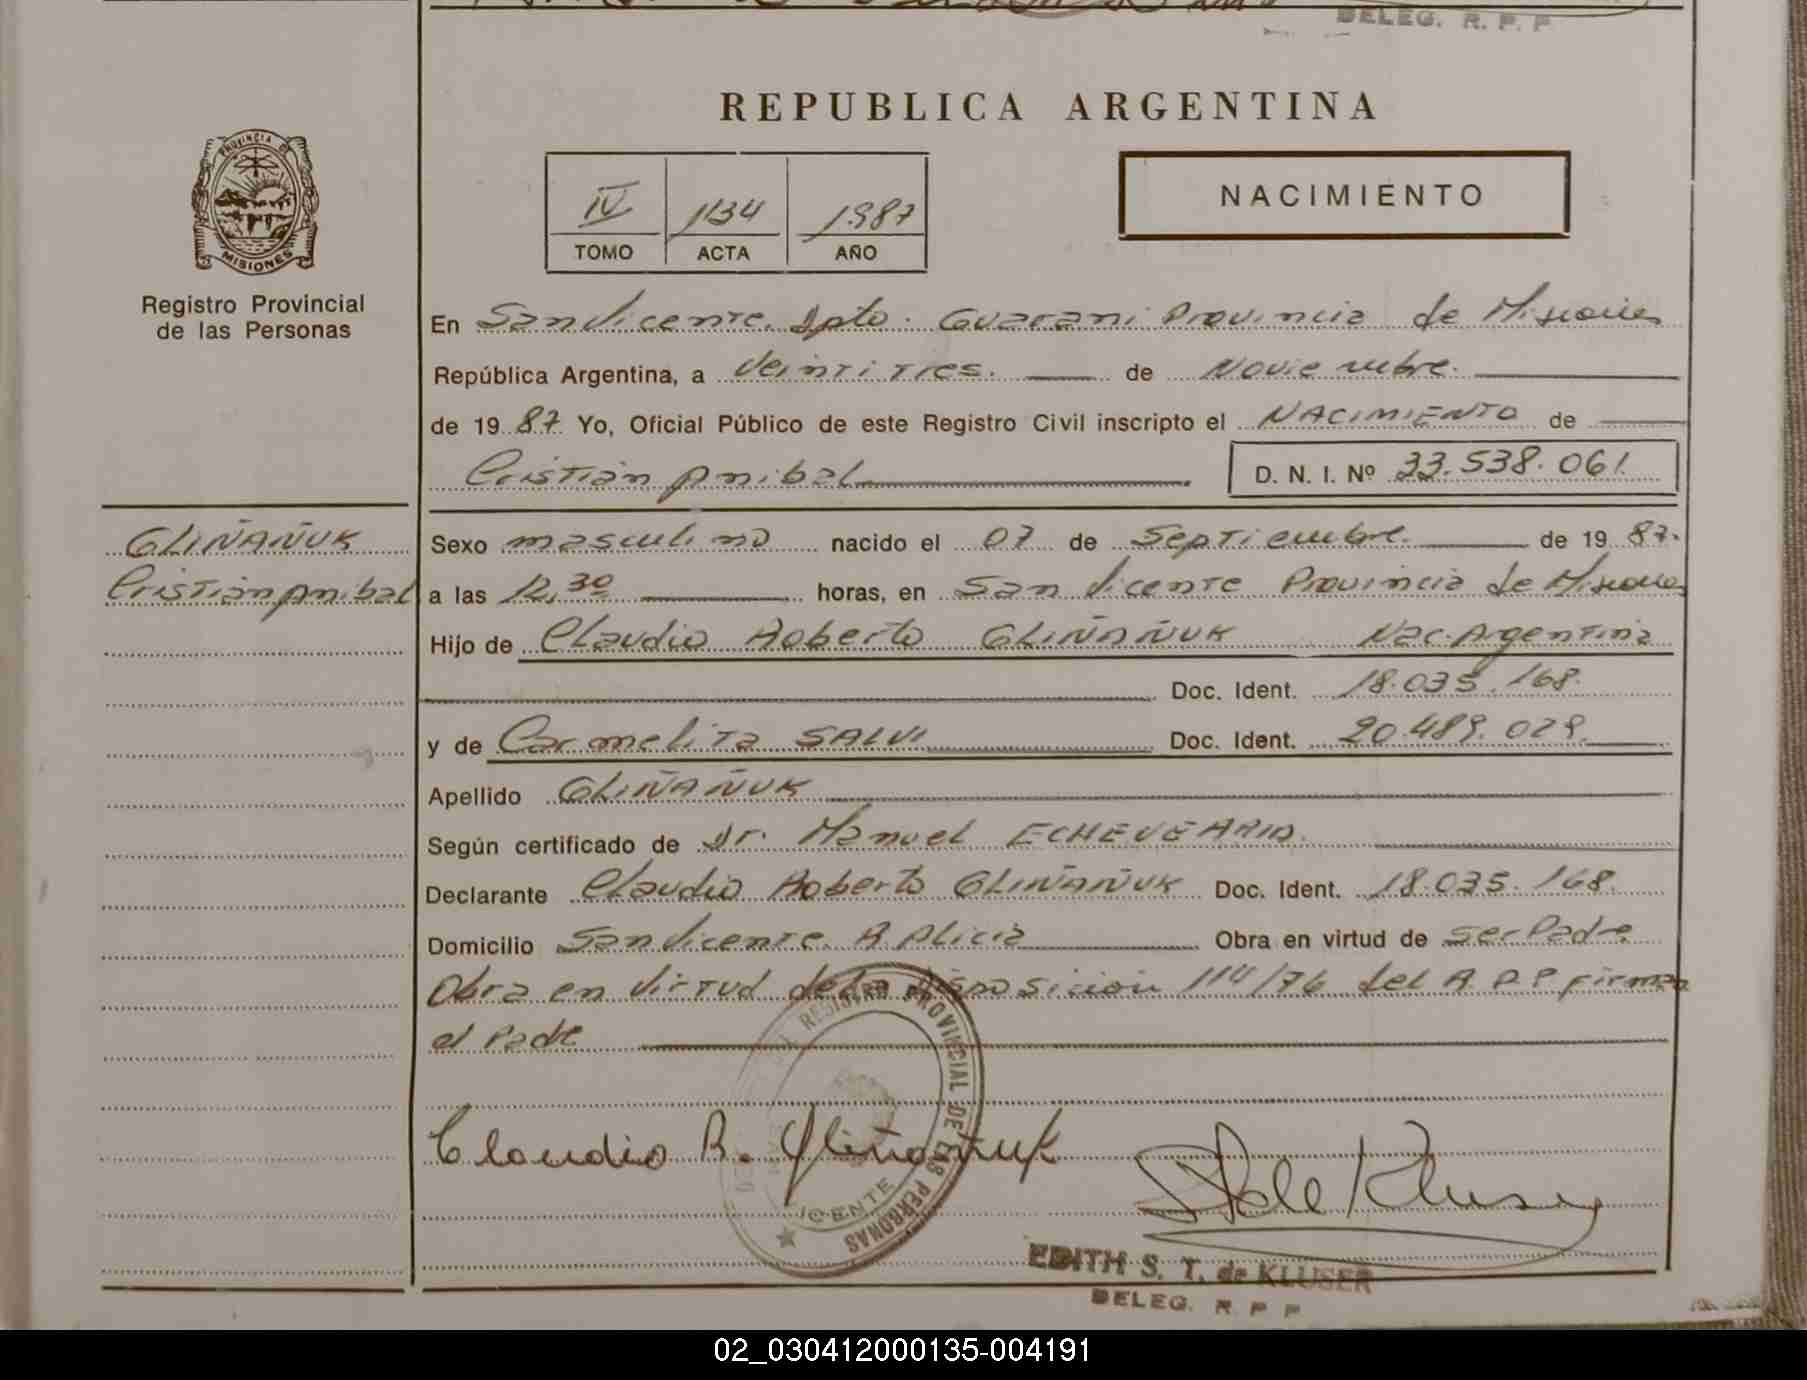 DELEG. R. P. P
REPUBLICA ARGENTINA
PROVINCIA DE
MISIONES
Registro Provincial
de las Personas
IV 1134 1987
TOMO ACTA AÑO
NACIMIENTO
En San Vicente, Dpto. Guarani Provincia de Misiones
República Argentina, a Veintitres. de Noviembre.
de 1987. Yo, Oficial Público de este Registro Civil inscripto el NACIMIENTO de
Cristian Anibal D. N. I. Nº 33.538.061.
GLIÑAÑUK
Cristian Anibal
Sexo masculino nacido el 07 de Septiembre. de 1987.
a las 12,30 horas, en San Vicente Provincia de Misiones
Hijo de Claudio Roberto GLIÑAÑUK Nac. Argentina
Doc. Ident. 18.035.168.
y de Carmelita SALVI Doc. Ident. 20.489.029.
Apellido GLIÑAÑUK
Según certificado de Dr. Manuel ECHEVEARRIA.
Declarante Claudio Roberto GLIÑAÑUK Doc. Ident. 18.035.168.
Domicilio San Vicente. A Alicia Obra en virtud de ser Padre
Obra en virtud de la disposicion 114/76 del R.P.P firman
el Padre
REGISTRO PROVINCIAL DE LAS PERSONAS
ICENTE
Claudio R. Gliñañuk
de Kluser
EDITH S. T. de KLUSER
DELEG. R P P
02_030412000135-004191